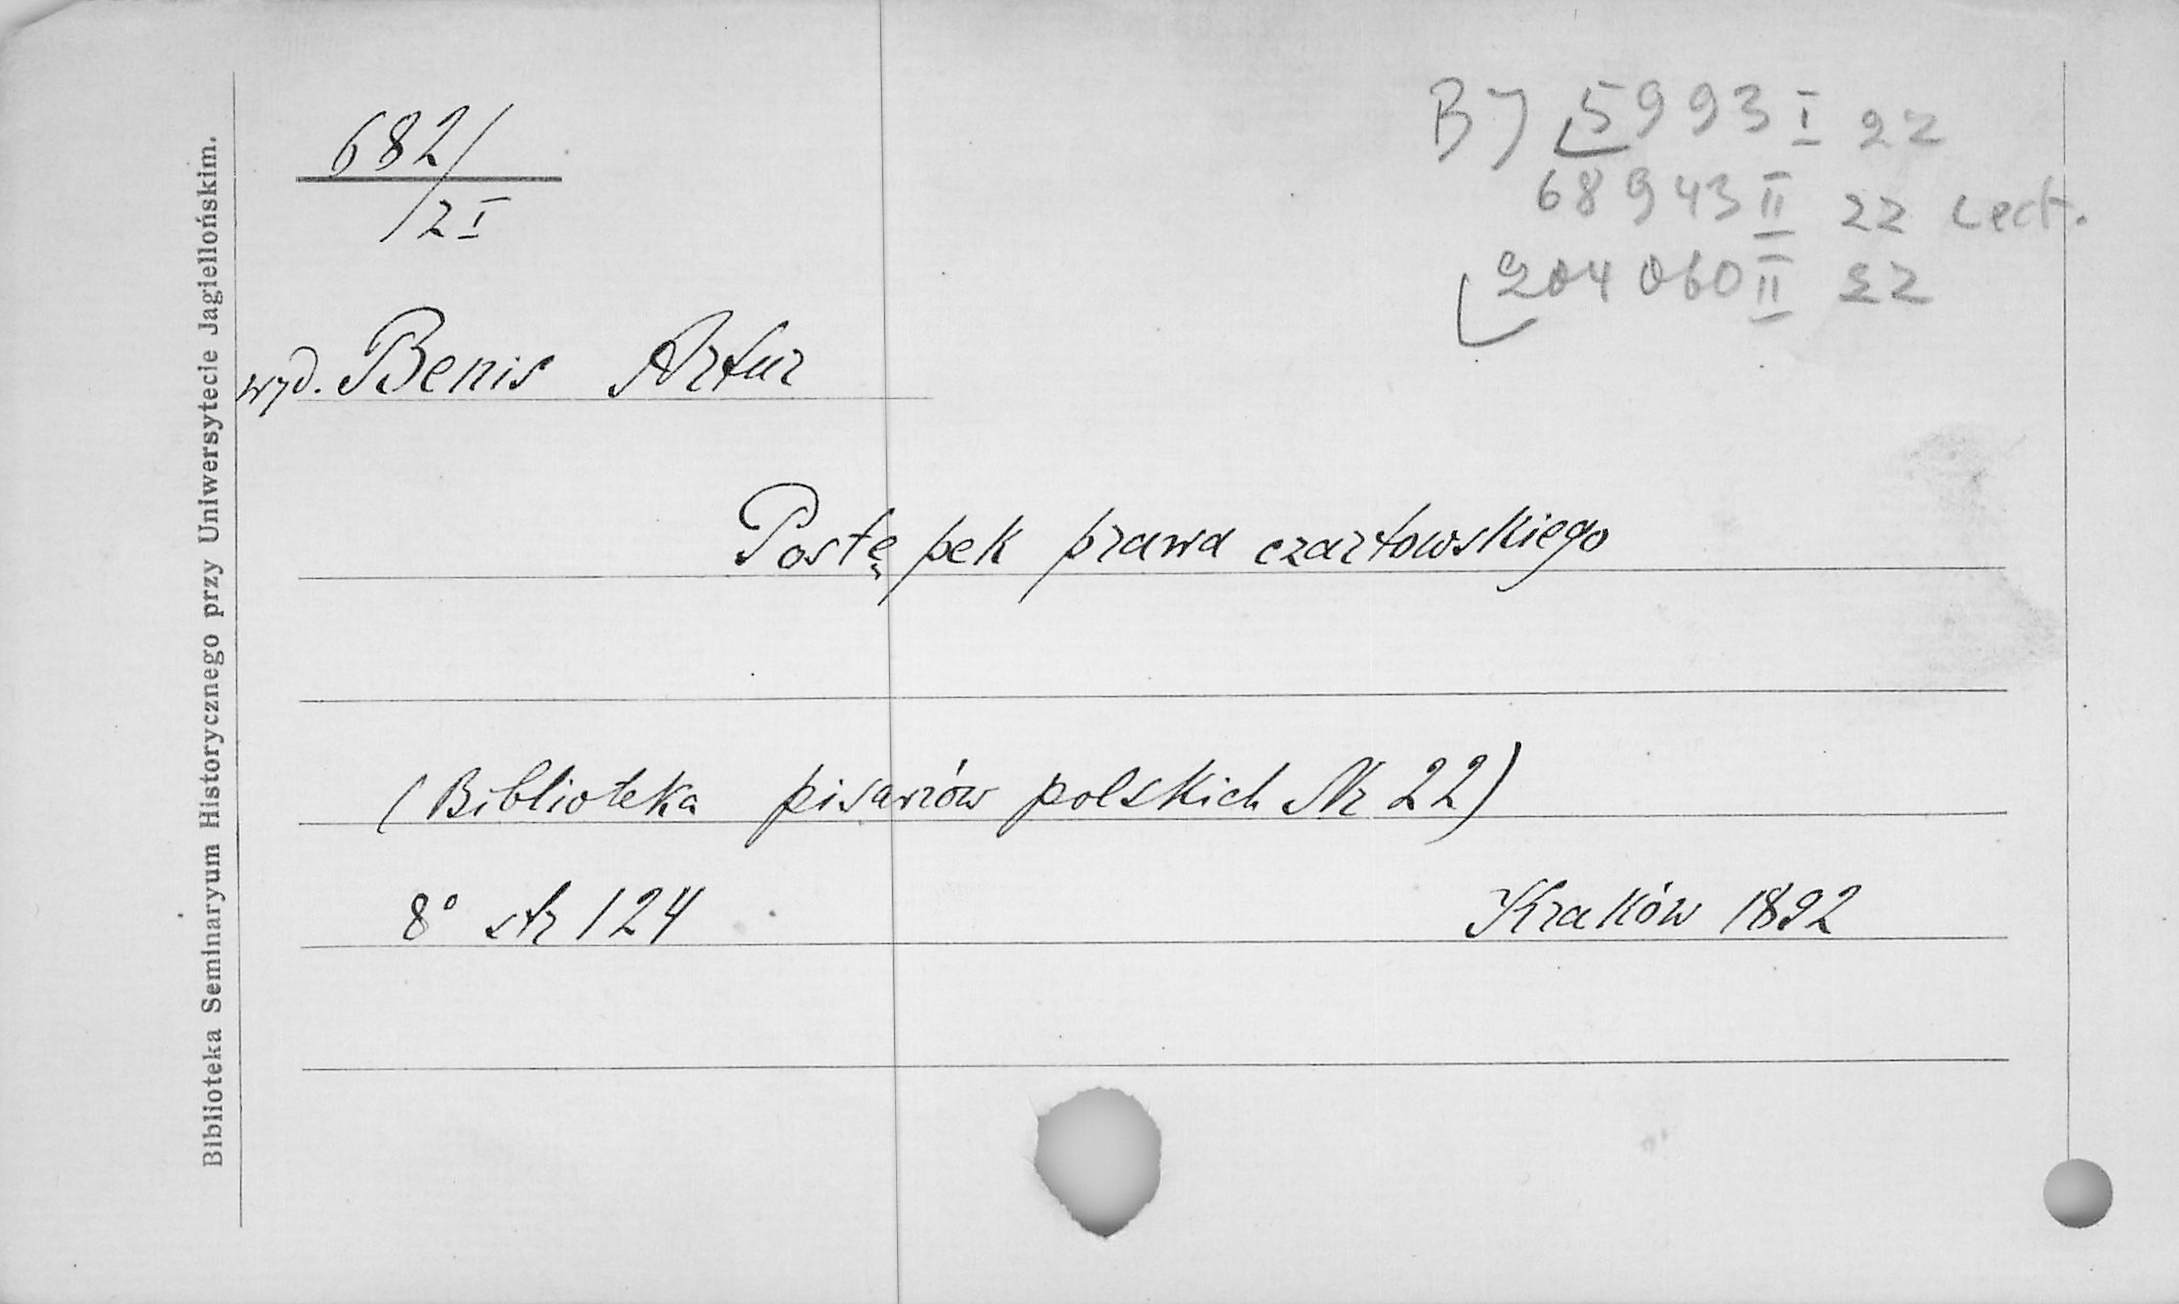 682/
/2 I
BJ 5993 I 22
68943 II 22 Lect.
204060 II 22
wyd. Benis Artur
Postępek prawa czartowskiego
(Biblioteka pisarzów polskich Nr 22)
8° str 124
Kraków 1892
Biblioteka Seminaryum Historycznego przy Uniwersytecie Jagiellońskim.